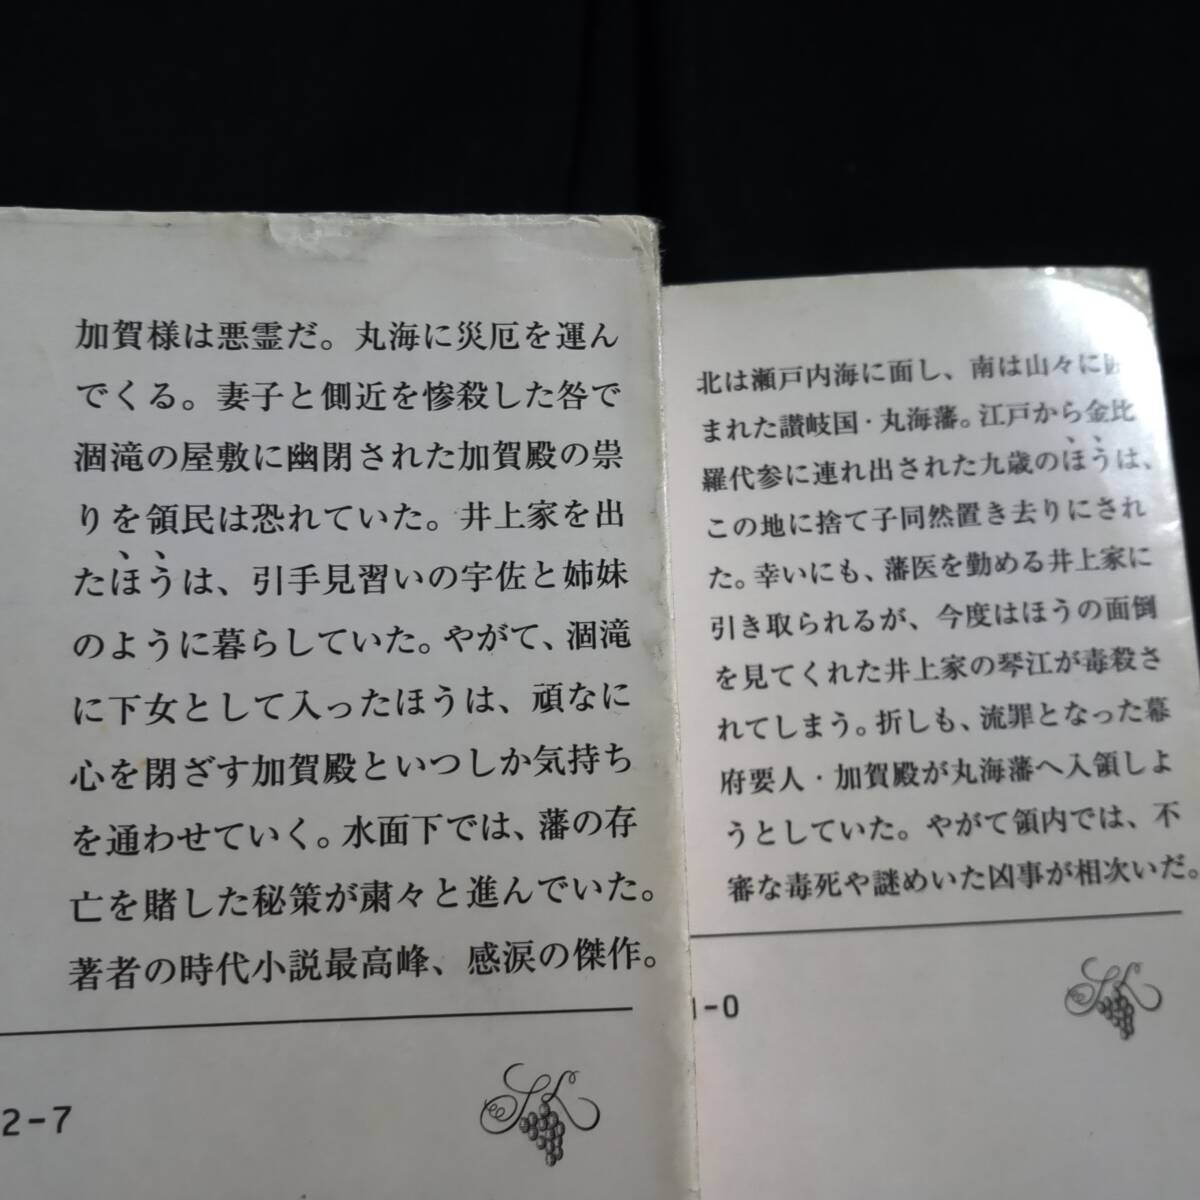 加賀様は悪霊だ。丸海に災厄を運ん
でくる。妻子と側近を惨殺した咎で
涸滝の屋敷に幽閉された加賀殿の祟
りを領民は恐れていた。井上家を出
たほうは、引手見習いの宇佐と姉妹
のように暮らしていた。やがて、涸滝
に下女として入ったほうは、頑なに
心を閉ざす加賀殿といつしか気持ち
を通わせていく。水面下では、藩の存
亡を賭した秘策が粛々と進んでいた。
著者の時代小説最高峰、感涙の傑作。
2-7
北は瀬戸内海に面し、南は山々に
まれた讃岐国・丸海藩。江戸から金比
羅代参に連れ出された九歳のほうは、
この地に捨て子同然置き去りにされ
た。幸いにも、藩医を勤める井上家に
引き取られるが、今度はほうの面倒
を見てくれた井上家の琴江が毒殺さ
れてしまう。折しも、流罪となった幕
府要人・加賀殿が丸海藩へ入領しよ
うとしていた。やがて領内では、不
審な毒死や謎めいた凶事が相次いだ。
1-0